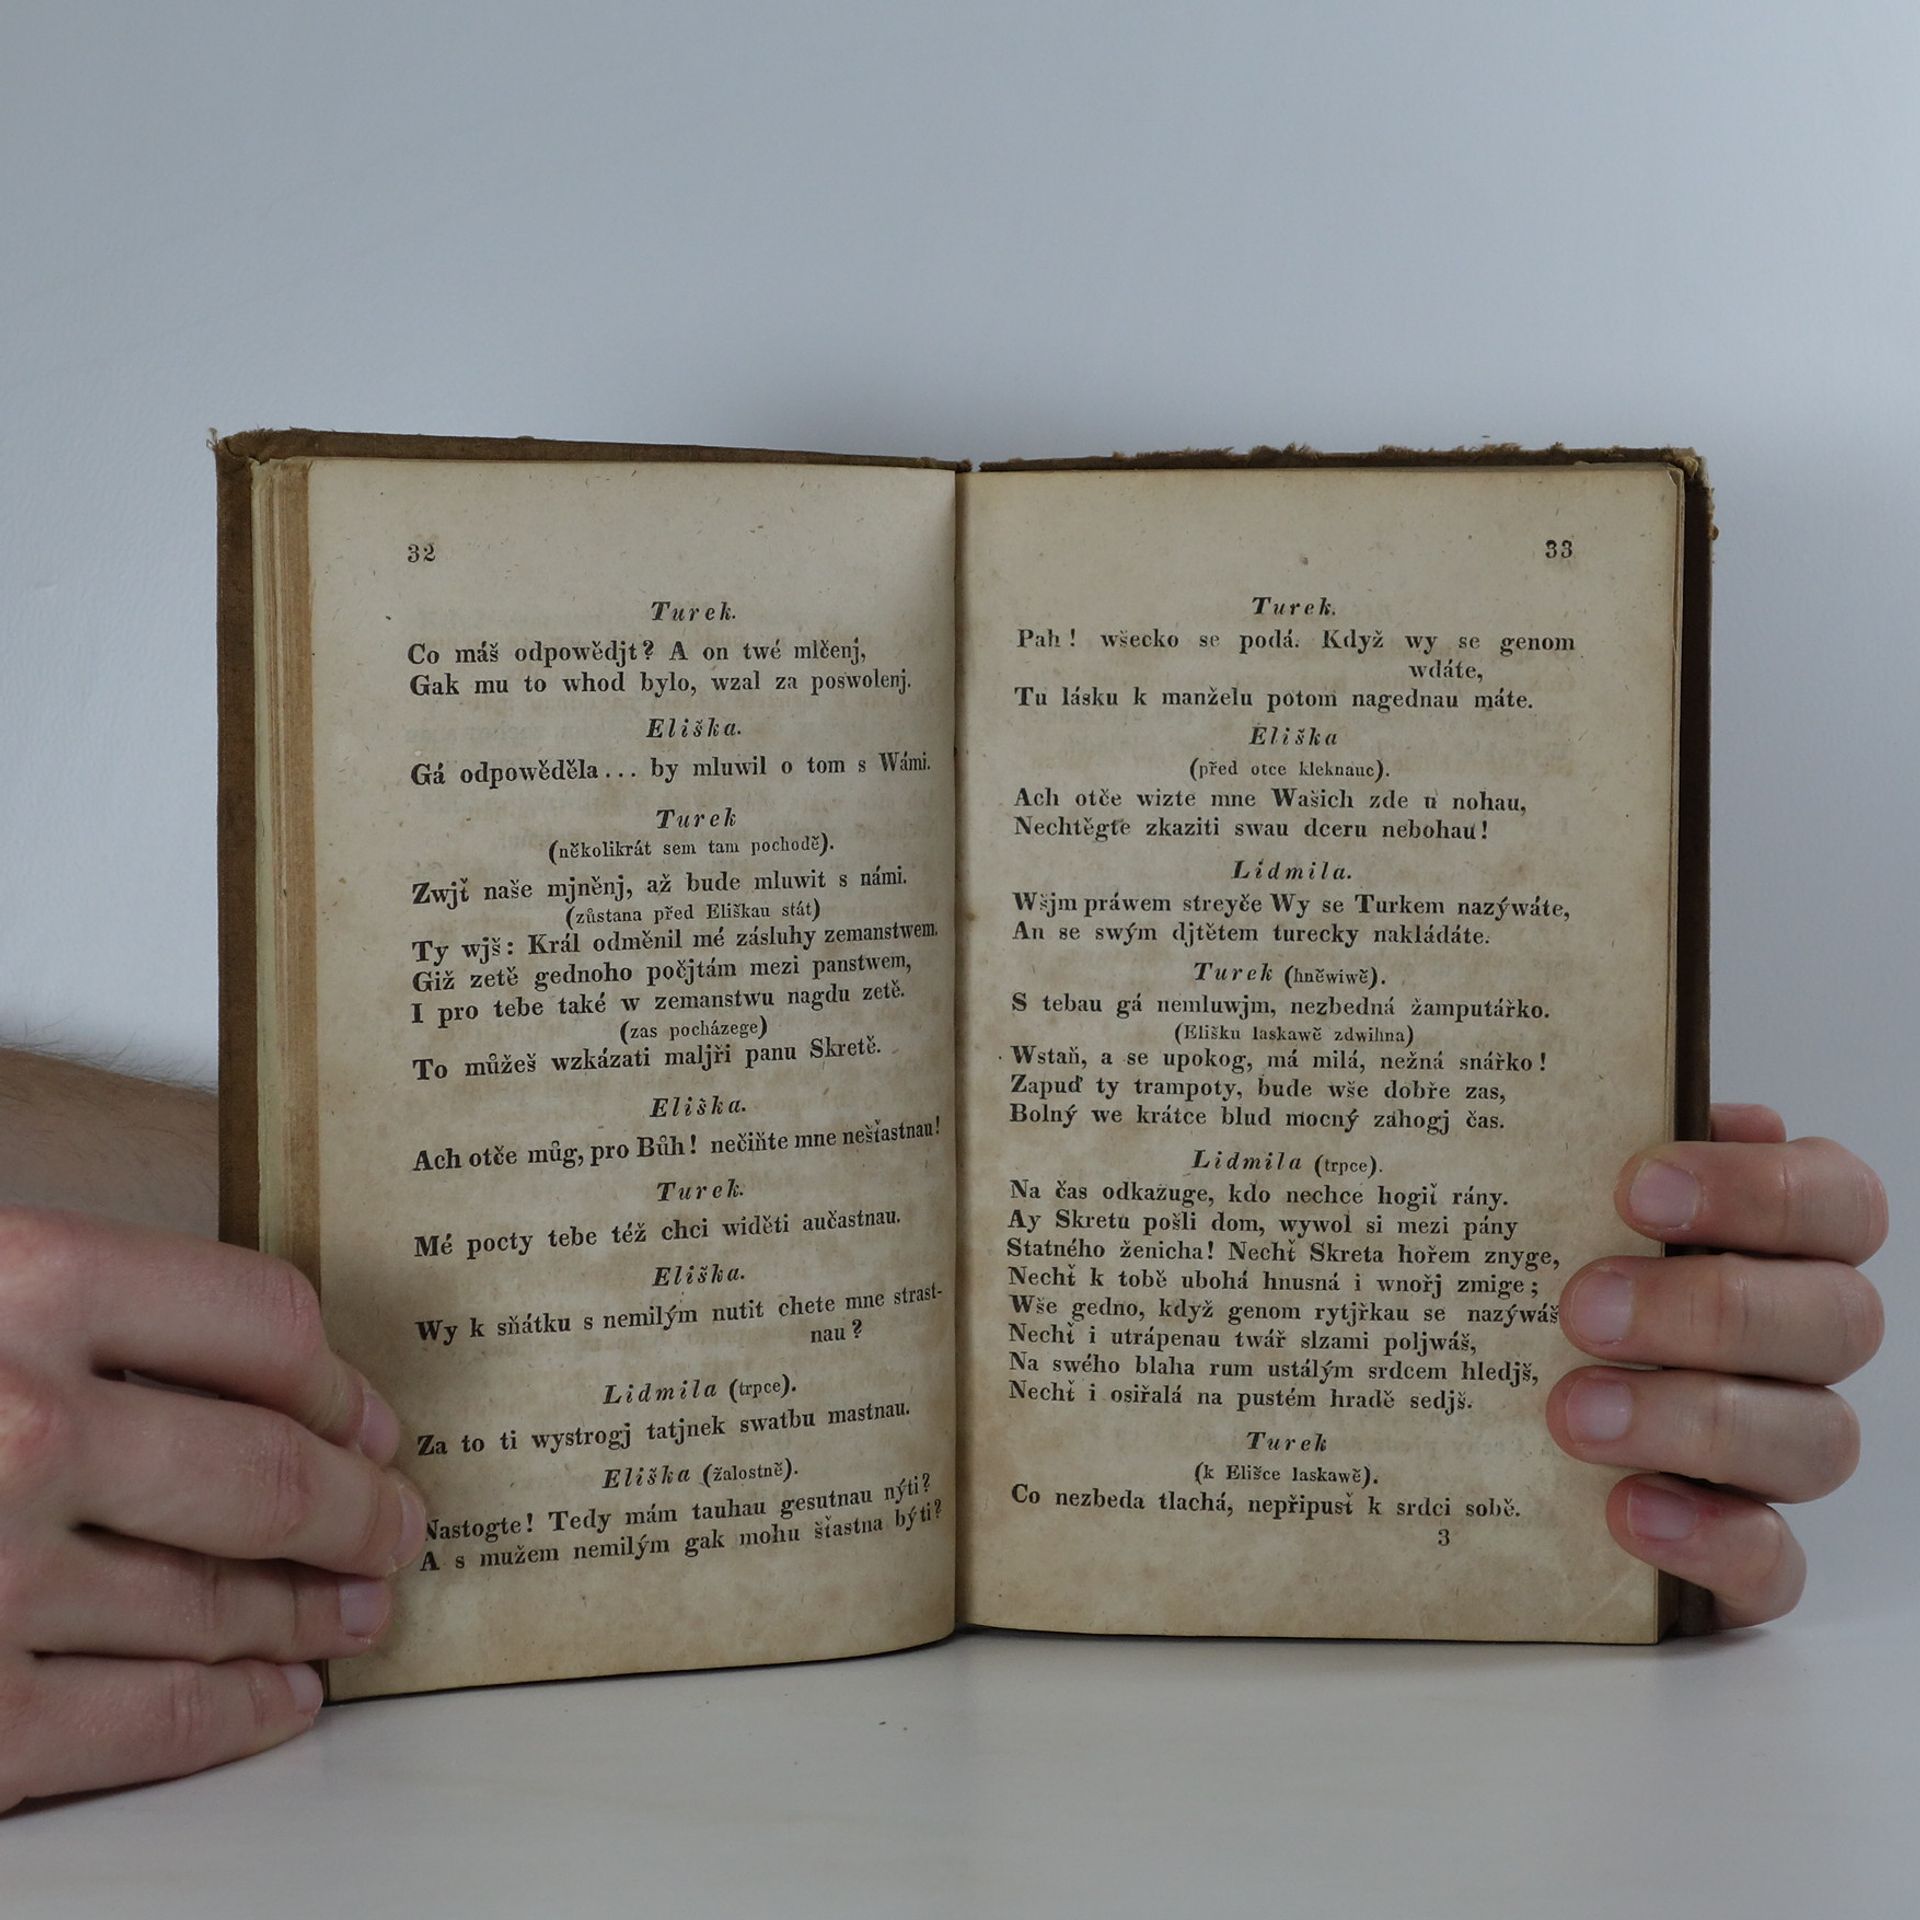 32
Turek.
Co máš odpowědjt? A on twé mlčenj,
Gak mu to whod bylo, wzal za poswolenj.
Eliška.
Gá odpowěděla... by mluwil o tom s Wámi.
Turek
(několikrát sem tam pochodě).
Zwjť naše mjněnj, až bude mluwit s námi.
(zůstana před Eliškau stát)
Ty wjš: Král odměnil mé zásluhy zemanstwem.
Giž zetě gednoho počjtám mezi panstwem,
I pro tebe také w zemanstwu nagdu zetě.
(zas pocházege)
To můžeš wzkázati maljři panu Skretě.
Eliška.
Ach otče můg, pro Bůh! nečiňte mne nešťastnau!
Turek.
Mé pocty tebe též chci widěti aučastnau.
Eliška.
Wy k sňátku s nemilým nutit chete mne strast-
nau?
Lidmila (trpce).
Za to ti wystrogj tatjnek swatbu mastnau.
Eliška (žalostně).
Nastogte! Tedy mám tauhau gesutnau nýti?
A s mužem nemilým gak mohu šťastna býti?
33
Turek.
Pah! wšecko se podá. Když wy se genom
wdáte,
Tu lásku k manželu potom nagednau máte.
Eliška
(před otce kleknauc).
Ach otče wizte mne Wašich zde u nohau,
Nechtěgte zkaziti swau dceru nebohau!
Lidmila.
Wšjm práwem streyče Wy se Turkem nazýwáte,
An se swým djtětem turecky nakládáte.
Turek (hněwiwě).
S tebau gá nemluwjm, nezbedná žamputářko.
(Elišku laskawě zdwihna)
Wstaň, a se upokog, má milá, nežná snářko!
Zapuď ty trampoty, bude wše dobře zas,
Bolný we krátce blud mocný záhogj čas.
Lidmila (trpce).
Na čas odkazuge, kdo nechce hogiť rány.
Ay Skretu pošli dom, wywol si mezi pány
Statného ženicha! Nechť Skreta hořem znyge,
Nechť k tobě ubohá hnusná i wnořj zmige;
Wše gedno, když genom rytjřkau se nazýwáš
Nechť i utrápenau twář slzami poljwáš,
Na swého blaha rum ustálým srdcem hledjš,
Nechť i osiřalá na pustém hradě sedjš.
Turek
(k Elišce laskawě).
Co nezbeda tlachá, nepřipusť k srdci sobě.
3